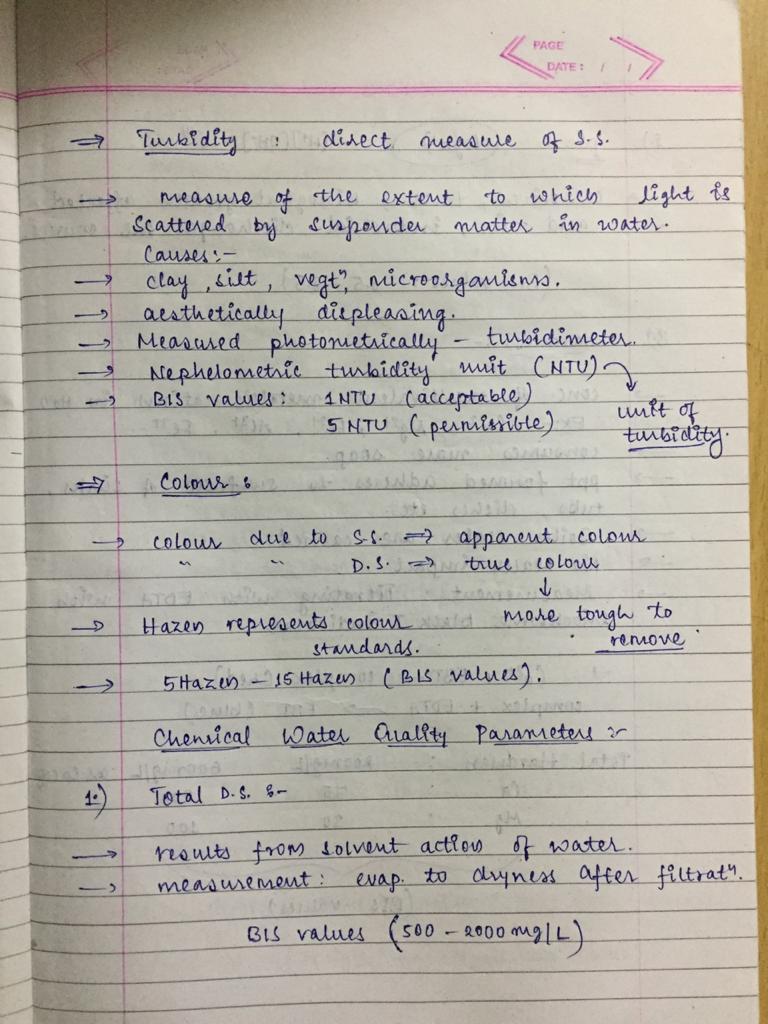 PAGE
DATE: / /
⇒ Turbidity : direct measure of S.S.
→ measure of the extent to which light is
scattered by susponder matter in water.
Causes:-
→ clay, silt, vegtⁿ, microorganisms.
→ aesthetically displeasing.
→ Measured photometrically - turbidimeter.
→ Nephelometric turbidity unit (NTU)
→ BIS values: 1 NTU (acceptable)
5 NTU (permissible)
unit of
turbidity.
⇒ Colour :
→ colour due to S.S. ⇒ apparent colour
" " D.S. ⇒ true colour
↓
→ Hazen represents colour more tough to
standards. remove.
→ 5 Hazen - 15 Hazen (BIS values).
Chemical Water Quality Parameters :-
1.) Total D.S. :-
→ results from solvent action of water.
→ measurement: evap. to dryness after filtratⁿ.
BIS values (500 - 2000 mg/L)